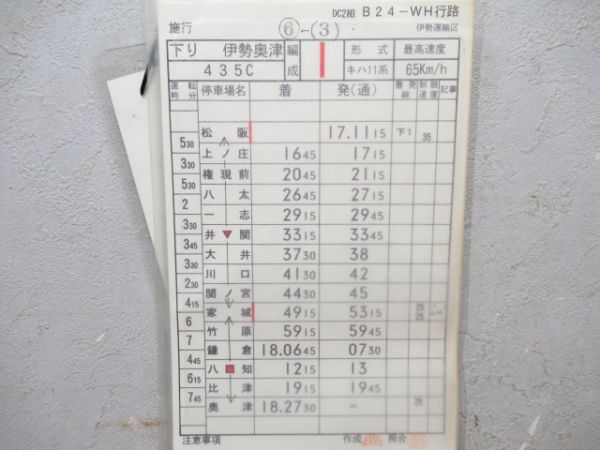 DC2組 B24-WH行路
施行 ⑥-(3) 伊勢運輸区
下り 伊勢奥津 編成 形式 最高速度
435C キハ11系 65Km/h
運転時分 停車場名 着 発(通) 着発線 制限速度 記事
松阪 17.11 15 下1 35
5 30
上ノ庄 16 45 17 15
3 30
権現前 20 45 21 15
5 30
八太 26 45 27 15
2
一志 29 15 29 45
3 30
井関 33 15 33 45
3 45
大井 37 30 38
3 30
川口 41 30 42
2 30
関ノ宮 44 30 45
4 15
家城 49 15 53 15
6
竹原 59 15 59 45
7
鎌倉 18.06 45 07 30
4 45
八知 12 15 13
6 15
比津 19 15 19 45
7 45
奥津 18.27 30 = 25
注意事項 作成 照合